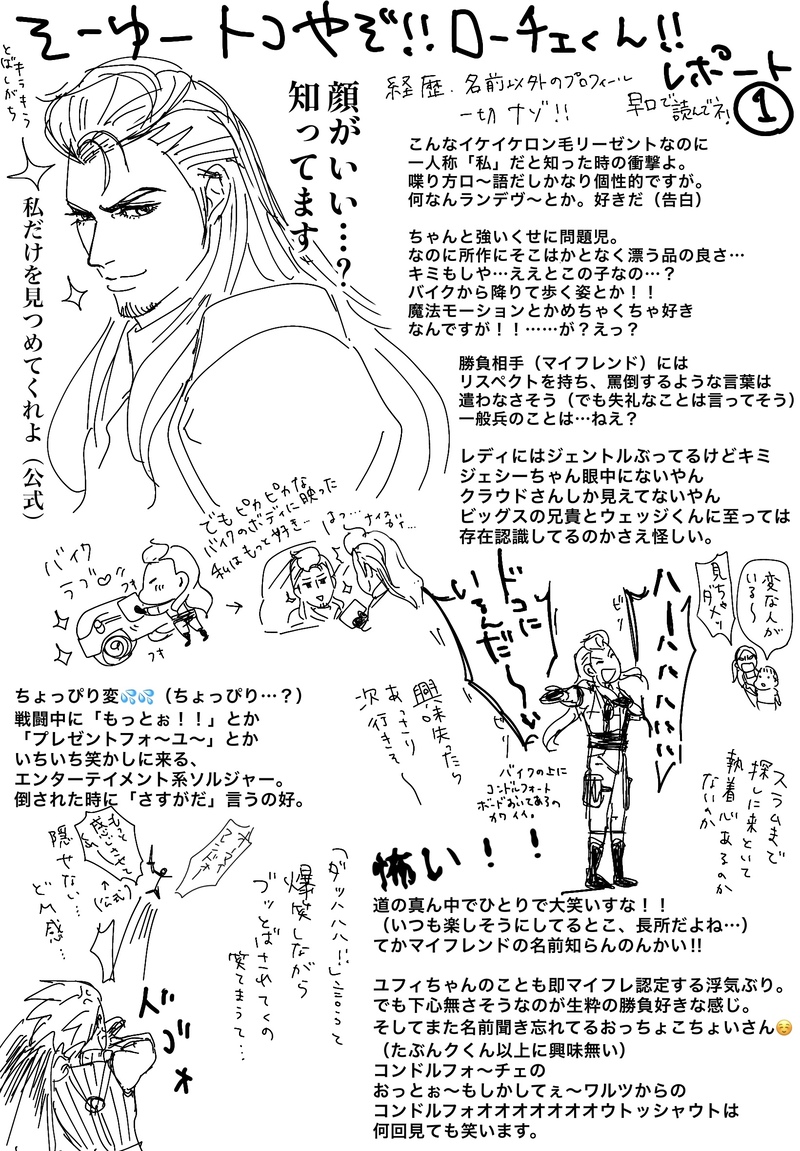 そーゆートコやぞ!! ローチェくん!!
レポート
①
早口で読んでネ!
経歴、名前以外のプロフィール
一切ナゾ!!
キラキラ
とばしがち
顔がいい…?
知ってます
私だけを見つめてくれよ（公式）
こんなイケイケロン毛リーゼントなのに
一人称「私」だと知った時の衝撃よ。
喋り方ロ〜語だしかなり個性的ですが。
何なんランデヴ〜とか。好きだ（告白）
ちゃんと強いくせに問題児。
なのに所作にそこはかとなく漂う品の良さ…
キミもしや…ええとこの子なの…？
バイクから降りて歩く姿とか！！
魔法モーションとかめちゃくちゃ好き
なんですが！！……が？えっ？
勝負相手（マイフレンド）には
リスペクトを持ち、罵倒するような言葉は
遣わなさそう（でも失礼なことは言ってそう）
一般兵のことは…ねえ？
レディにはジェントルぶってるけどキミ
ジェシーちゃん眼中にないやん
クラウドさんしか見えてないやん
ビッグスの兄貴とウェッジくんに至っては
存在認識してるのかさえ怪しい。
バイク
ラブ♡
つキ
つキ
→
でもピカピカな
バイクのボディに映った
私はもっと好き…
はっ…ナイスガイ…
ドコに
いるんだ〜〜
ハーハハハハハ
ビリ
ビリ
変な人が
いる〜
見ちゃ
ダメッ
ちょっぴり変💦💦（ちょっぴり…？）
戦闘中に「もっとぉ！！」とか
「プレゼントフォ〜ユ〜」とか
いちいち笑かしに来る、
エンターテイメント系ソルジャー。
倒された時に「さすがだ」言うの好。
興味失ったら
あっさり
次行きそ〜
バイクの上に
コンドルフォート
ボードおいてあるの
カワイイ。
スラムまで
探しに来といて
執着心あるのか
ないのか
もっと
感じさせて
↑
（公式）
マイフレンド
隠せない…
どM感…
「ダッハハハ!!」言って
爆笑しながら
ブッとばされてくの
笑てまうて…
バゴォ
怖い！！
道の真ん中でひとりで大笑いすな！！
（いつも楽しそうにしてるとこ、長所だよね…）
てかマイフレンドの名前知らんのんかい!!
ユフィちゃんのことも即マイフレ認定する浮気ぶり。
でも下心無さそうなのが生粋の勝負好きな感じ。
そしてまた名前聞き忘れてるおっちょこちょいさん☺️
（たぶんクくん以上に興味無い）
コンドルフォ〜チェの
おっとぉ〜もしかしてぇ〜ワルツからの
コンドルフォオオオオオオオウトッシャウトは
何回見ても笑います。